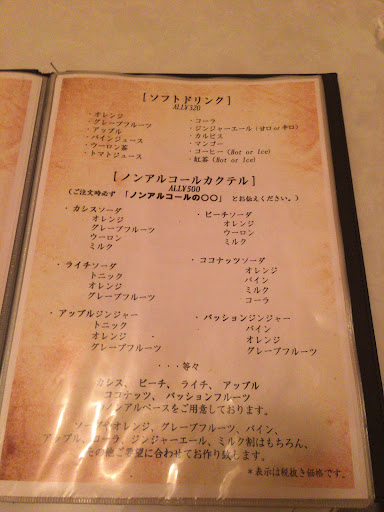 [ソフトドリンク]
ALL¥320
・オレンジ
・グレープフルーツ
・アップル
・パインジュース
・ウーロン茶
・トマトジュース
・コーラ
・ジンジャーエール (甘口 or 辛口)
・カルピス
・マンゴー
・コーヒー (Hot or Ice)
・紅茶 (Hot or Ice)
[ノンアルコールカクテル]
ALL¥500
(ご注文時必ず 「ノンアルコールの〇〇」 とお伝えください。)
・カシスソーダ
オレンジ
グレープフルーツ
ウーロン
ミルク
・ピーチソーダ
オレンジ
ウーロン
ミルク
・ライチソーダ
トニック
オレンジ
グレープフルーツ
・ココナッツソーダ
オレンジ
パイン
ミルク
コーラ
・アップルジンジャー
トニック
オレンジ
グレープフルーツ
・パッションジンジャー
パイン
オレンジ
グレープフルーツ
・・・等々
カシス、ピーチ、ライチ、アップル
ココナッツ、パッションフルーツ
ノンアルベースをご用意しております。
ソーダやオレンジ、グレープフルーツ、パイン、
アップル、コーラ、ジンジャーエール、ミルク割はもちろん、
その他ご要望に合わせてお作り致します。
*表示は税抜き価格です。